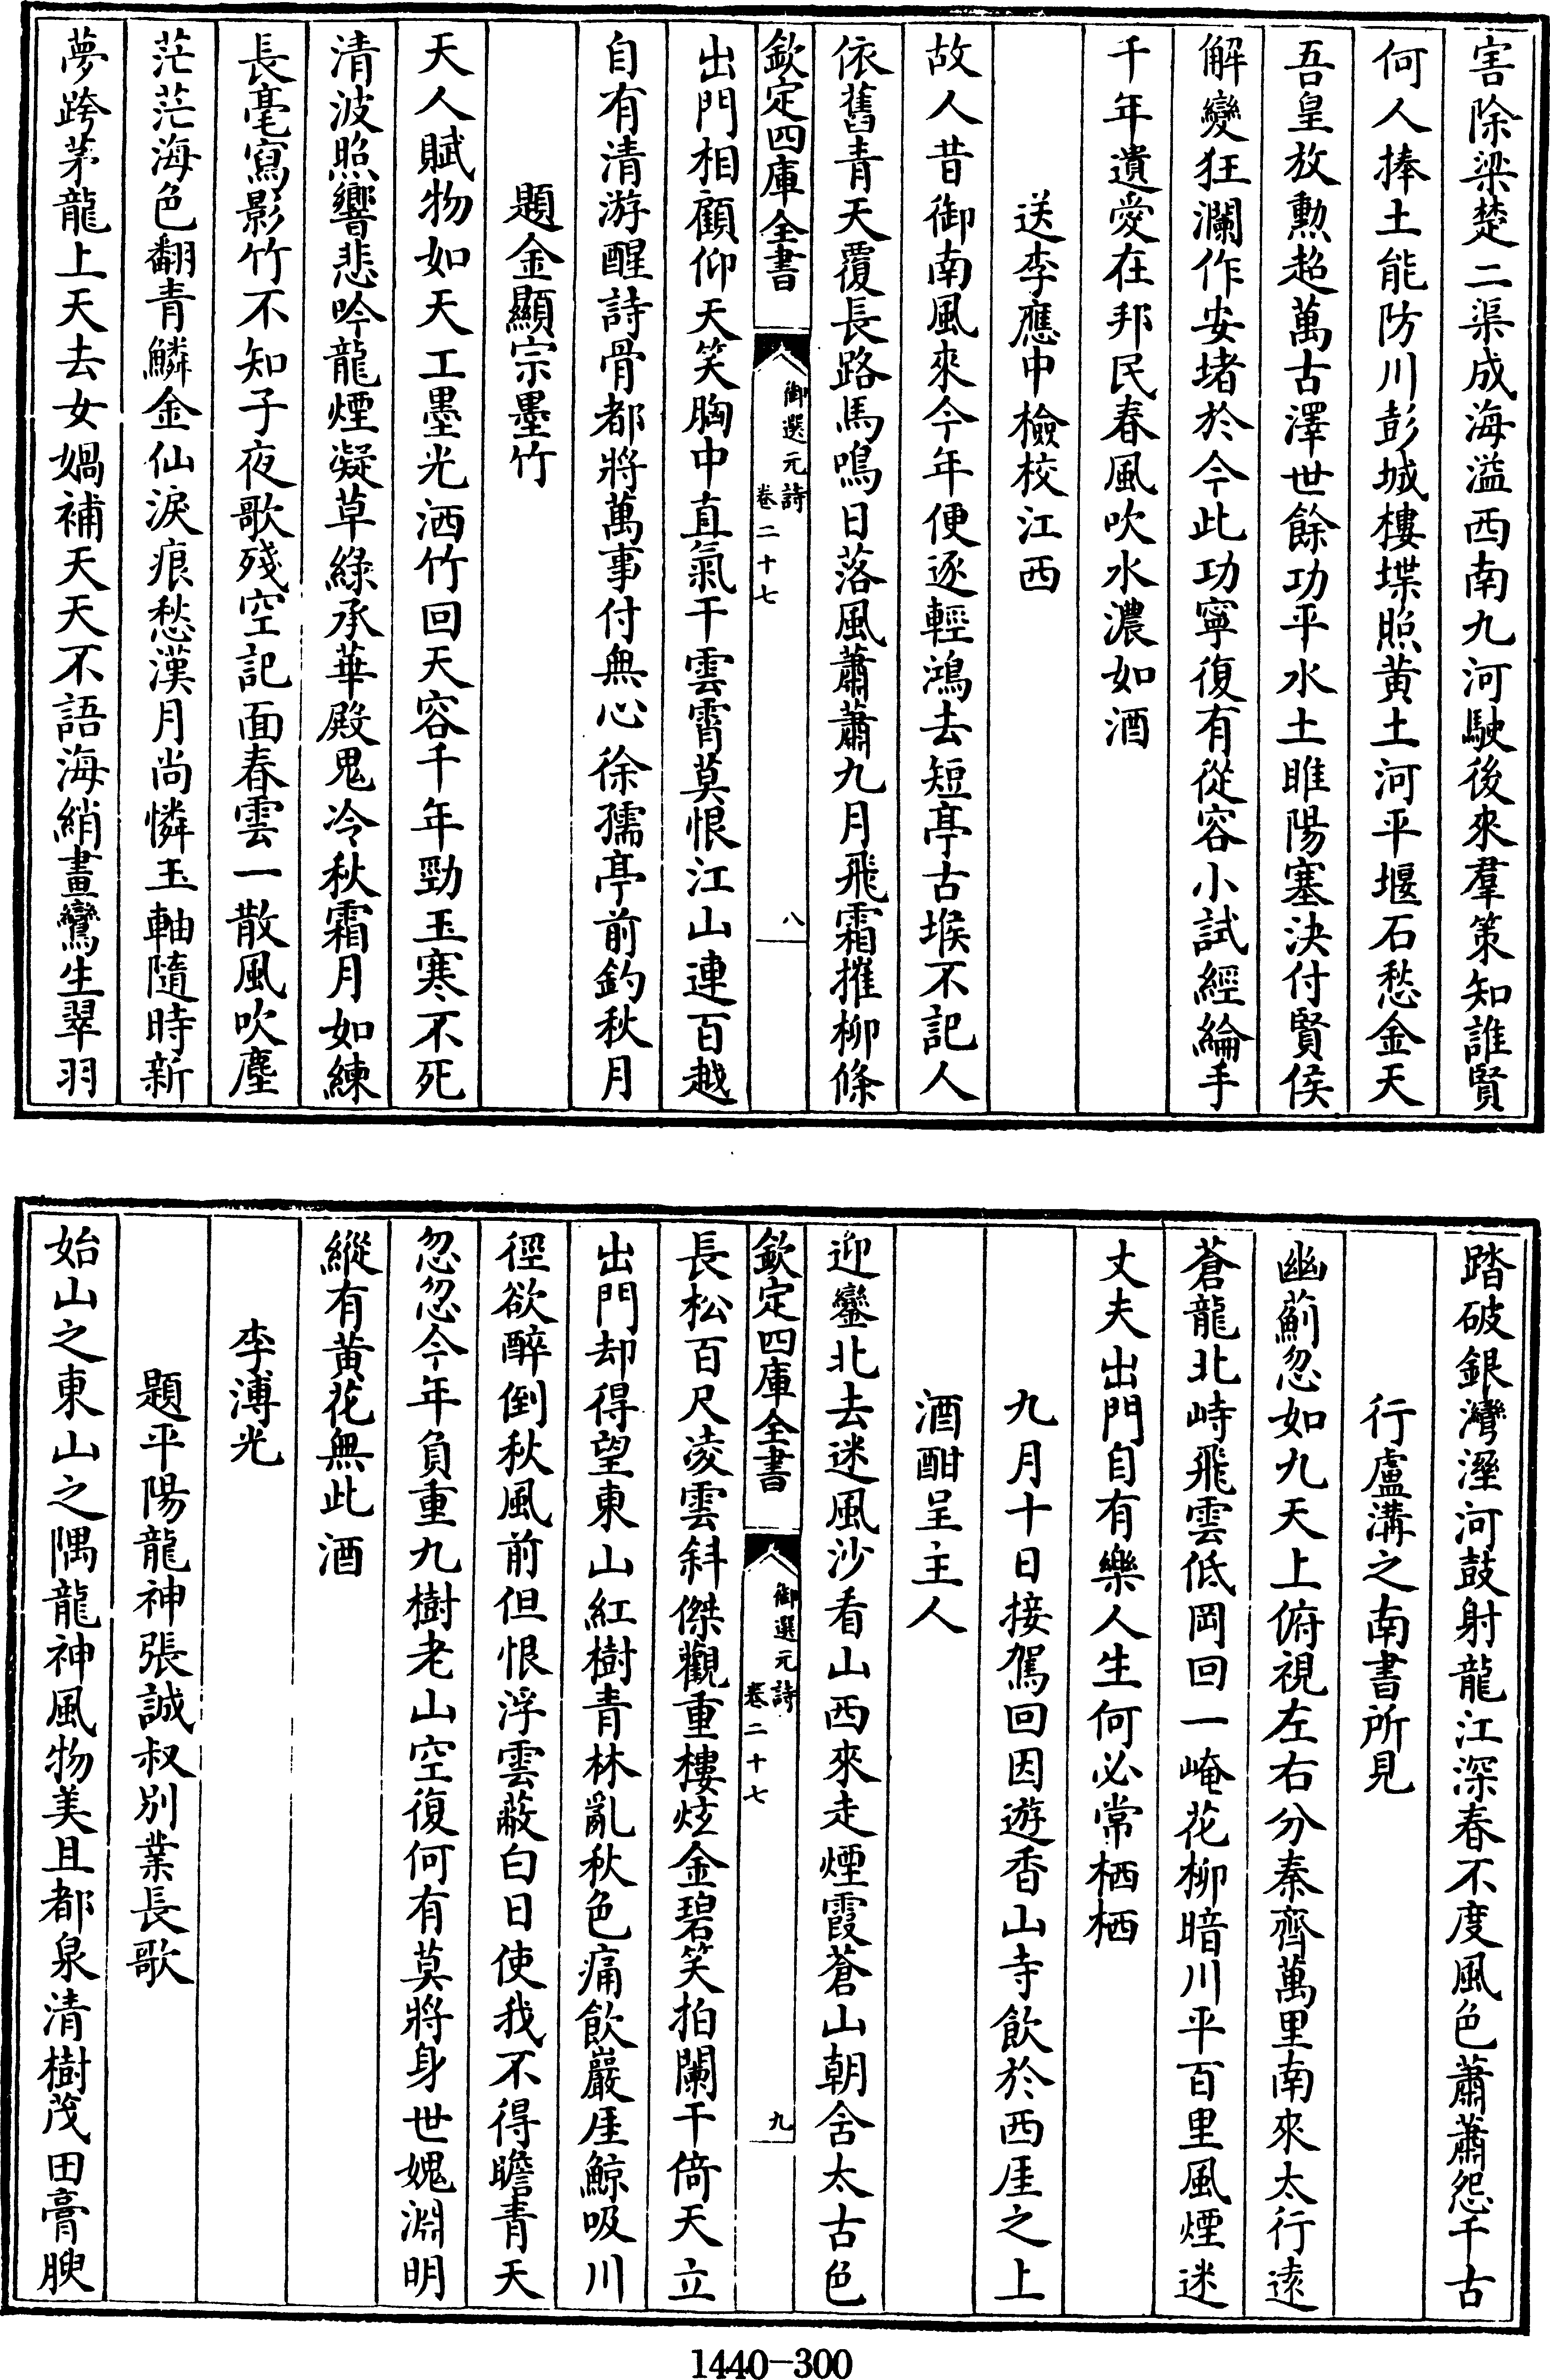 害除梁楚二渠成海溢西南九河駛後來羣策知誰賢
何人捧土能防川彭城樓堞照黃土河平堰石愁金天
吾皇放勲超萬古澤世餘功平水土睢陽塞決付賢侯
解變狂瀾作安堵於今此功寧復有從容小試經綸手
千年遺愛在邦民春風吹水濃如酒
送李應中檢校江西
故人昔御南風來今年便逐輕鴻去短亭古堠不記人
依舊青天覆長路馬鳴日落風蕭蕭九月飛霜摧柳條
欽定四庫全書
御選元詩
卷二十七
八
出門相顧仰天笑胸中直氣干雲霄莫恨江山連百越
自有清游醒詩骨都將萬事付無心徐孺亭前釣秋月
題金顯宗墨竹
天人賦物如天工墨光洒竹回天容千年勁玉寒不死
清波照響悲吟龍煙凝草綠承華殿鬼冷秋霜月如練
長毫寫影竹不知子夜歌殘空記面春雲一散風吹塵
茫茫海色翻青鱗金仙淚痕愁漢月尚憐玉軸隨時新
夢跨茅龍上天去女媧補天天不語海綃畫鸞生翠羽
踏破銀灣溼河鼓射龍江深春不度風色蕭蕭怨千古
行盧溝之南書所見
幽薊忽如九天上俯視左右分秦齊萬里南來太行遠
蒼龍北峙飛雲低岡回一崦花柳暗川平百里風煙迷
丈夫出門自有樂人生何必常栖栖
九月十日接駕回因遊香山寺飲於西厓之上
酒酣呈主人
迎鑾北去迷風沙看山西來走煙霞蒼山朝舍太古色
欽定四庫全書
御選元詩
卷二十七
九
長松百尺凌雲斜傑觀重樓炫金碧笑拍闌干倚天立
出門却得望東山紅樹青林亂秋色痛飲巖厓鯨吸川
徑欲醉倒秋風前但恨浮雲蔽白日使我不得瞻青天
忽忽今年負重九樹老山空復何有莫將身世媿淵明
縱有黃花無此酒
李溥光
題平陽龍神張誠叔別業長歌
始山之東山之隅龍神風物美且都泉清樹茂田膏腴
1440-300